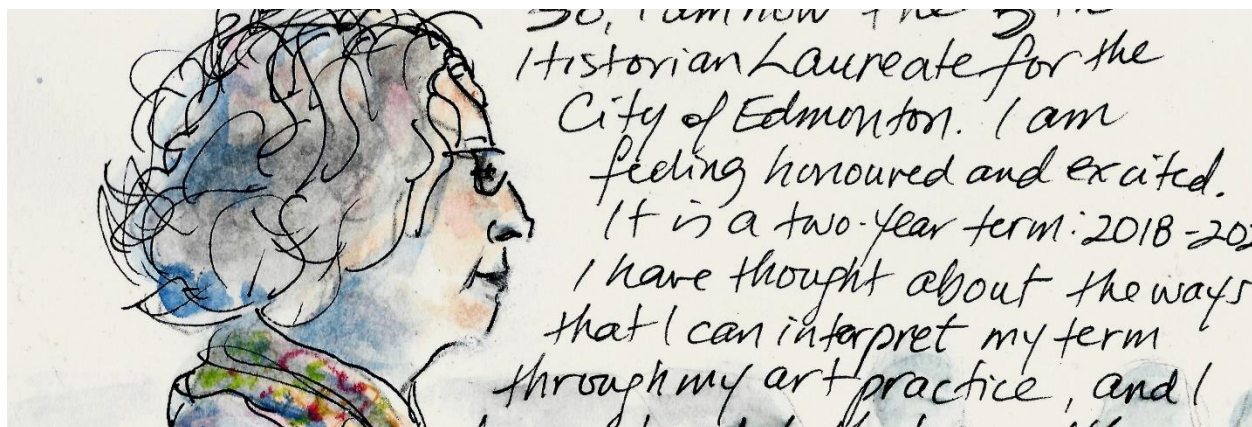 So, I am now the 5th
Historian Laureate for the
City of Edmonton. I am
feeling honoured and excited.
It is a two-year term: 2018-202
I have thought about the ways
that I can interpret my term
through my art practice, and I